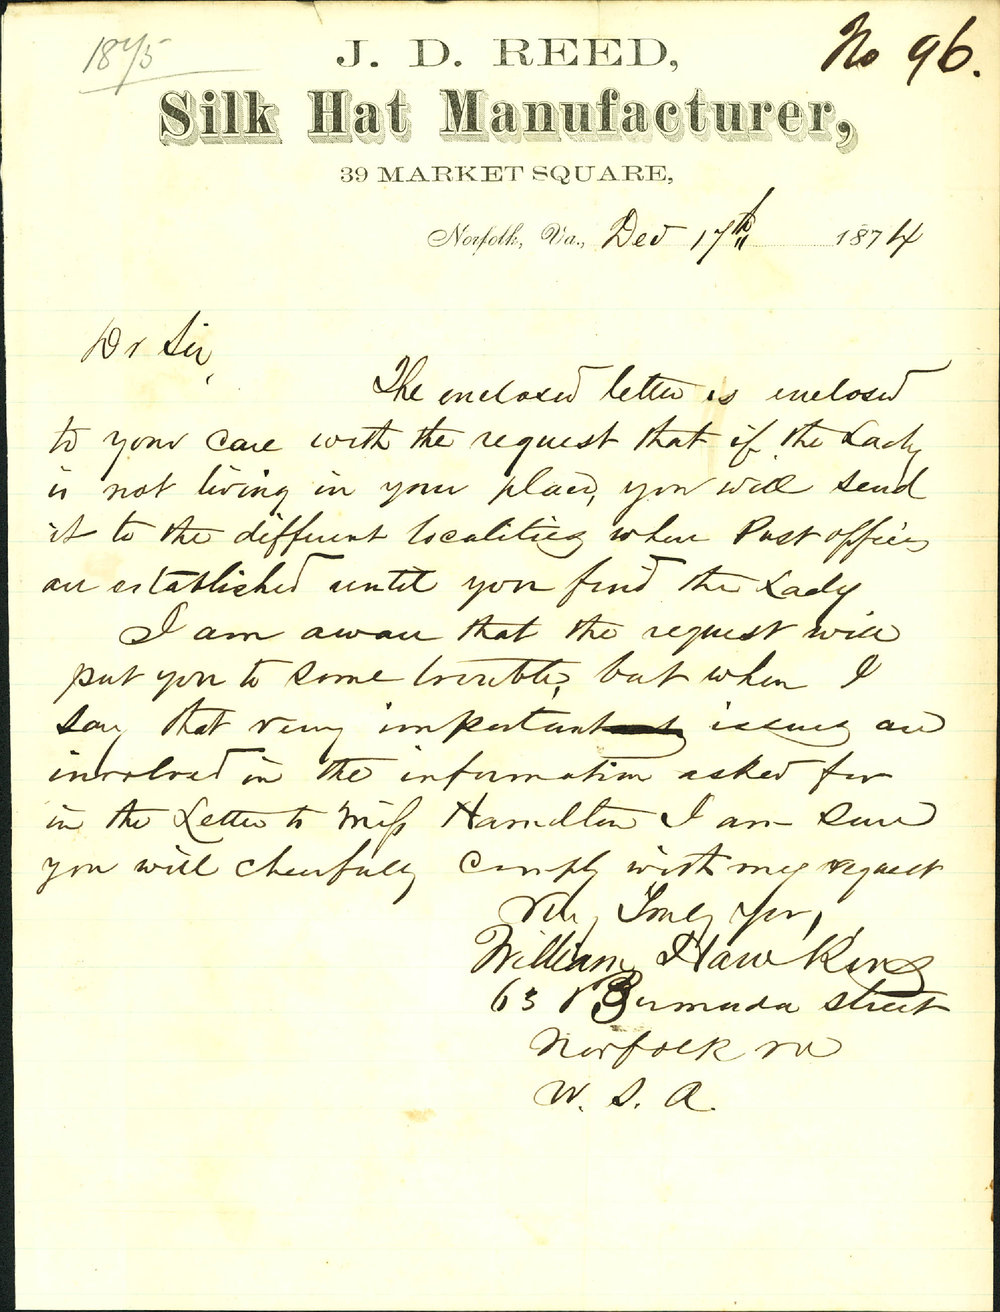 1875
No 96.
J. D. REED,
Silk Hat Manufacturer,
39 MARKET SQUARE,
Norfolk, Va., Dec 17th 1874
Dr Sir,
The enclosed letter is enclosed
to your care with the request that if the Lady
is not living in your place, you will send
it to the different localities where Post offices
are established until you find the Lady
I am aware that the request will
put you to some trouble, but when I
say that very important issues are
involved in the information asked for
in the Letter to Miss Hamilton I am sure
you will cheerfully comply with my request
Very Truly Yor,
William Hawkins
63 Bermuda street
Norfolk va
U. S. A.